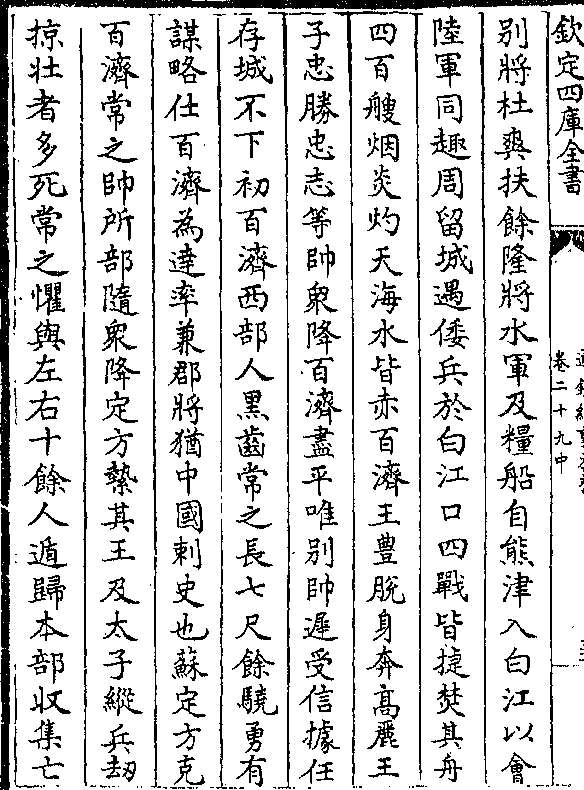 欽定四庫全書
卷二十九中
別將杜爽扶餘隆將水軍及糧船自熊津入白江以會
陸軍同趣周留城遇倭兵於白江口四戰皆捷焚其舟
四百艘烟炎灼天海水皆赤百濟王豊脫身奔髙麗王
子忠勝忠志等帥衆降百濟盡平唯别帥遲受信據任
存城不下初百濟西部人黑齒常之長七尺餘驍勇有
謀略仕百濟為逹率兼郡將猶中國刺史也蘇定方克
百濟常之帥所部隨衆降定方縶其王及太子縱兵刼
掠壯者多死常之懼與左右十餘人遁歸本部收集亡